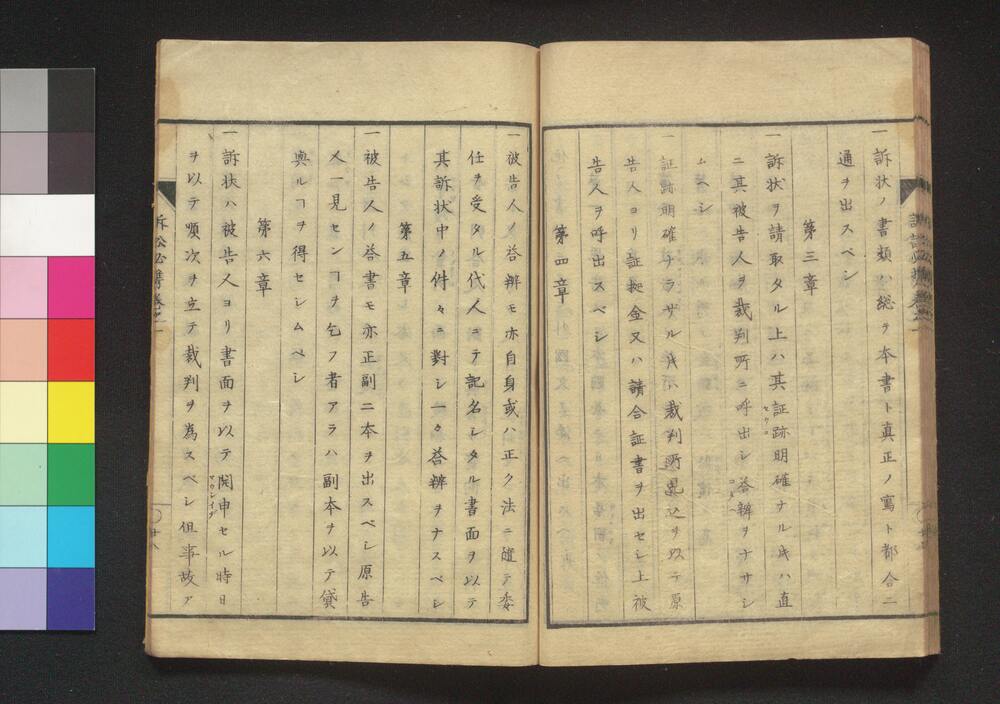 一訴状ノ書類ハ総テ本書ト真正ノ寫ト都合二
通ヲ出スベシ
第三章
一訴状ヲ請取タル上ハ其証跡明確ナル𪜈ハ直
ニ其被告人ヲ裁判所ニ呼出シ荅辨ヲナサシ
ムベシ
一証跡明確ナラザル𪜈ハ裁判所見込ヲ以テ原
告人ヨリ証拠金又ハ請合証書ヲ出セシ上被
告人ヲ呼出スベシ
第四章
一被告人ノ荅辨モ亦自身或ハ正ク法ニ遵テ委
任ヲ受タル代人ニテ記名シタル書面ヲ以テ
其訴状中ノ件々ニ對シ一々荅辨ヲナスベシ
第五章
一被告人ノ荅書モ亦正副二本ヲ出スベシ原告
人一見センヿヲ乞フ者アラハ副本ヲ以テ貸
與ルヿヲ得セシムベシ
第六章
一訴状ハ被告人ヨリ書面ヲ以テ開申セル時日
ヲ以テ順次ヲ立テ裁判ヲ為スベシ但事故ア